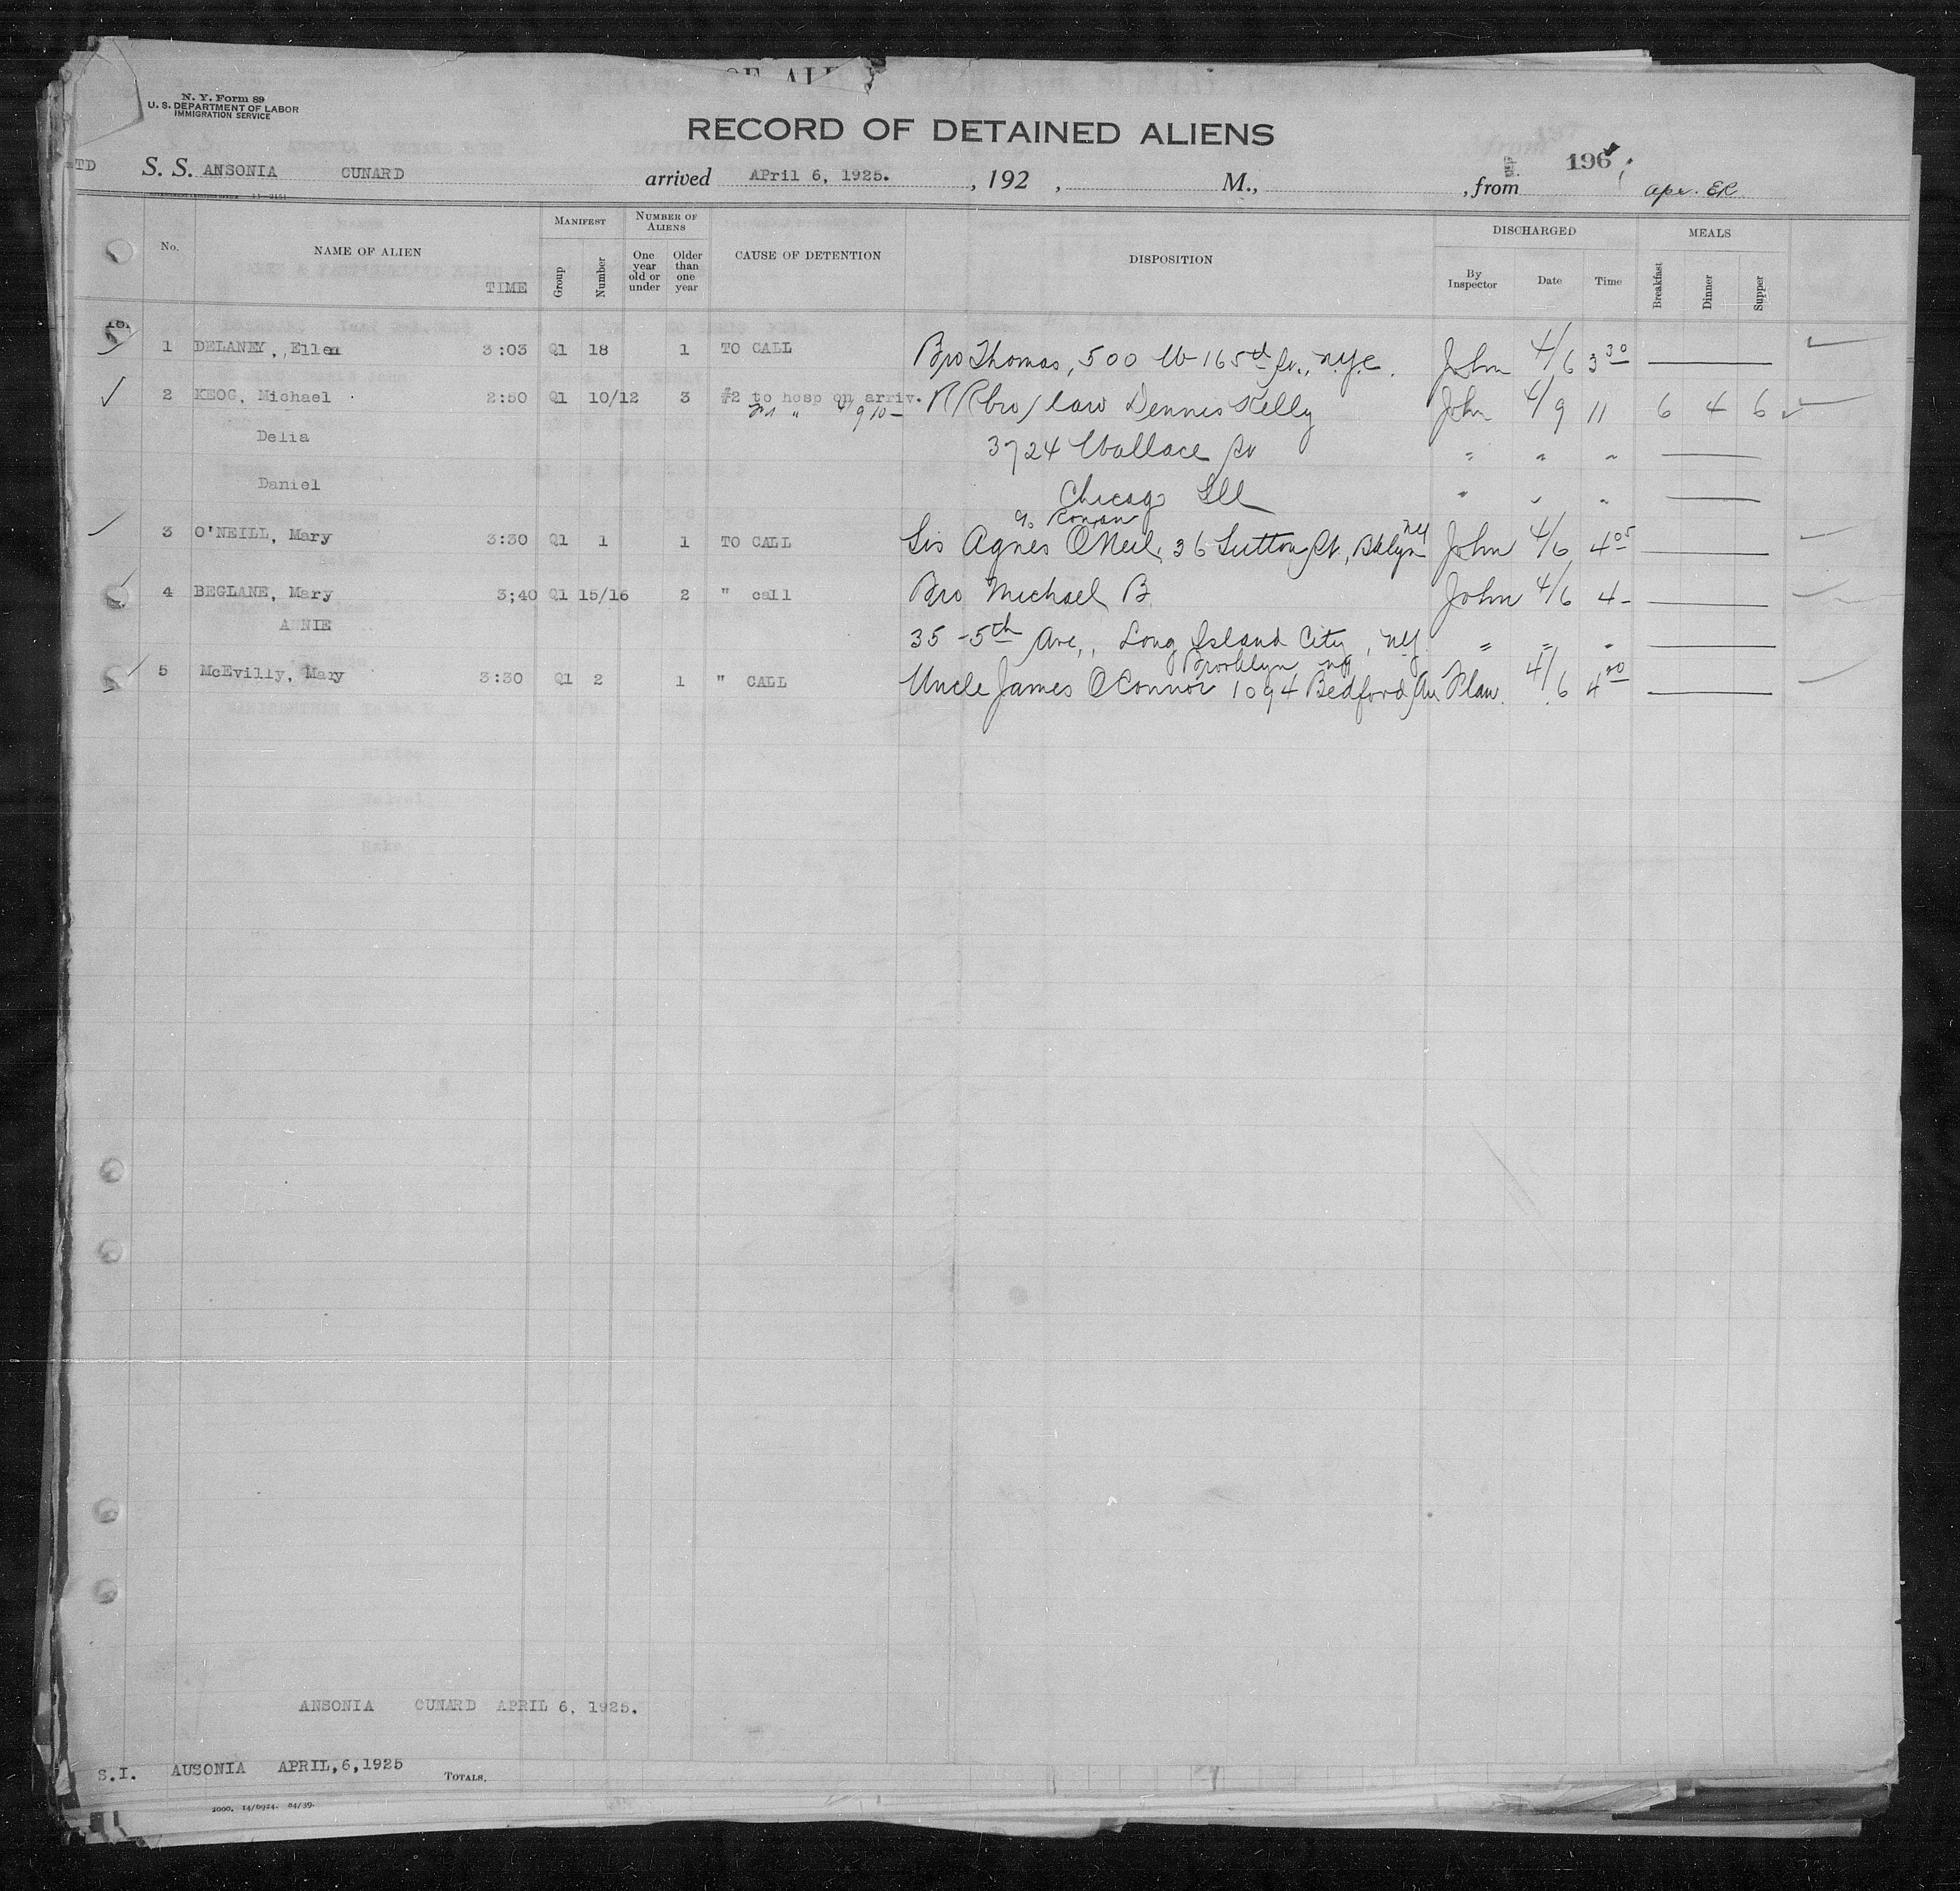 N. Y. Form 89
U. S. DEPARTMENT OF LABOR
IMMIGRATION SERVICE
RECORD OF DETAINED ALIENS
TD S. S. ANSONIA CUNARD arrived APril 6, 1925. , 192 , M., , from 196
No. NAME OF ALIEN TIME MANIFEST Group Number NUMBER OF ALIENS One year old or under Older than one year CAUSE OF DETENTION DISPOSITION DISCHARGED By Inspector Date Time MEALS Breakfast Dinner Supper
1 DELANEY, Ellen 3:03 Q1 18 1 TO CALL Bro Thomas, 500 W 165th St., N.Y.C. John 4/6 3 30
2 KEOG, Michael 2:50 Q1 10/12 3 #2 to hosp on arriv. R/R bro/law Dennis Kelly John 4/9 11 6 4 6
" 4/9 10 —
Delia 3724 Wallace St " " "
Daniel Chicago Ill " " "
c/o Ronan
3 O'NEILL, Mary 3:30 Q1 1 1 TO CALL Sis Agnes O'Neil, 36 Sutton St, Bklyn NY John 4/6 4 05
4 BEGLANE, Mary 3;40 Q1 15/16 2 " call Bro Michael B. John 4/6 4 -
ANNIE 35 - 5th Ave., Long Island City, N.Y. " " "
Brooklyn NY
5 McEvilly, Mary 3:30 Q1 2 1 " CALL Uncle James O'Connor 1094 Bedford Av 4/6 4 20
ANSONIA CUNARD APRIL 6, 1925.
S.I. AUSONIA APRIL,6,1925 TOTALS.
2000. 14/6924. 84/39.